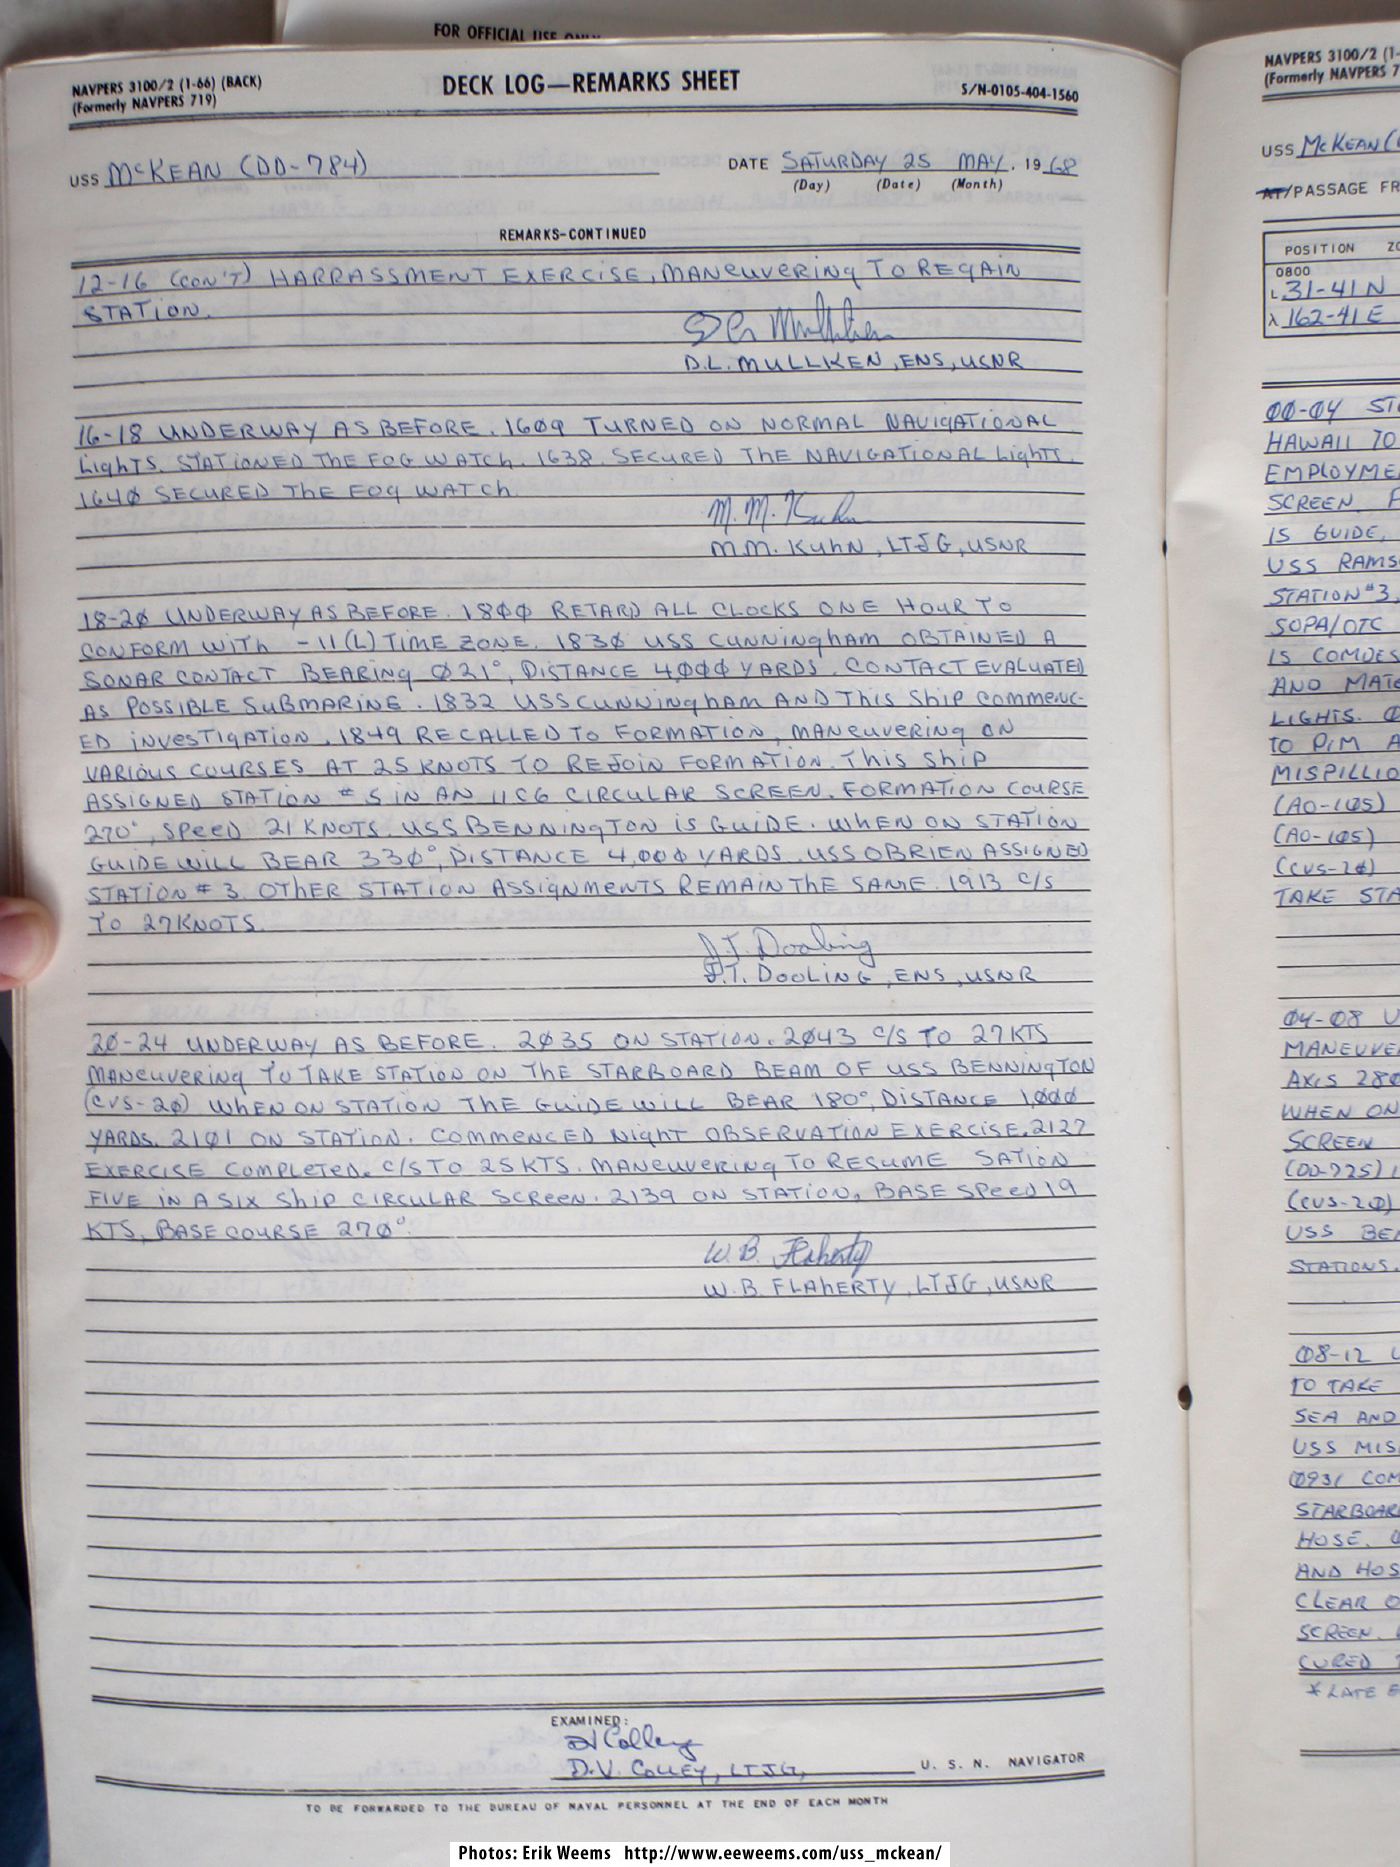 FOR OFFICIAL USE ONLY
NAVPERS 3100/2 (1-66) (BACK)
(Formerly NAVPERS 719)
DECK LOG—REMARKS SHEET
S/N-0105-404-1560
USS McKEAN (DD-784)
DATE SATURDAY 25 MAY, 1968
(Day) (Date) (Month)
REMARKS-CONTINUED
12-16 (CON'T) HARRASSMENT EXERCISE, MANEUVERING TO REGAIN
STATION.
D.L. MULLKEN, ENS, USNR
16-18 UNDERWAY AS BEFORE. 16Ø9 TURNED ON NORMAL NAVIGATIONAL
LIGHTS. STATIONED THE FOG WATCH. 1638. SECURED THE NAVIGATIONAL LIGHTS.
164Ø SECURED THE FOG WATCH.
M. M. Kuhn
M.M. KUHN, LTJG, USNR
18-2Ø UNDERWAY AS BEFORE. 18ØØ RETARD ALL CLOCKS ONE HOUR TO
CONFORM WITH -11(L) TIME ZONE. 183Ø USS CUNNINGHAM OBTAINED A
SONAR CONTACT BEARING Ø21°, DISTANCE 4,ØØØ YARDS. CONTACT EVALUATED
AS POSSIBLE SUBMARINE. 1832 USS CUNNINGHAM AND THIS SHIP COMMENC-
ED INVESTIGATION. 1849 RECALLED TO FORMATION, MANEUVERING ON
VARIOUS COURSES AT 25 KNOTS TO REJOIN FORMATION. THIS SHIP
ASSIGNED STATION #5 IN AN 11C6 CIRCULAR SCREEN. FORMATION COURSE
27Ø°, SPEED 21 KNOTS. USS BENNINGTON IS GUIDE. WHEN ON STATION
GUIDE WILL BEAR 33Ø°, DISTANCE 4,ØØØ YARDS. USS OBRIEN ASSIGNED
STATION #3. OTHER STATION ASSIGNMENTS REMAIN THE SAME. 1913 C/S
TO 27 KNOTS.
J.T. Dooling
J.T. DOOLING, ENS, USNR
2Ø-24 UNDERWAY AS BEFORE. 2Ø35 ON STATION. 2Ø43 C/S TO 27 KTS
MANEUVERING TO TAKE STATION ON THE STARBOARD BEAM OF USS BENNINGTON
(CVS-2Ø) WHEN ON STATION THE GUIDE WILL BEAR 18Ø°, DISTANCE 1,ØØØ
YARDS. 21Ø1 ON STATION. COMMENCED NIGHT OBSERVATION EXERCISE. 2127
EXERCISE COMPLETED. C/S TO 25 KTS. MANEUVERING TO RESUME SATION
FIVE IN A SIX SHIP CIRCULAR SCREEN. 2139 ON STATION, BASE SPEED 19
KTS, BASE COURSE 27Ø°.
W. B. Flaherty
W.B. FLAHERTY, LTJG, USNR
EXAMINED:
DV Colley
D.V. COLLEY, LTJG, U. S. N. NAVIGATOR
TO BE FORWARDED TO THE BUREAU OF NAVAL PERSONNEL AT THE END OF EACH MONTH
NAVPERS 3100/2 (1-
(Formerly NAVPERS 7
USS McKEAN (
AT/PASSAGE FR
POSITION ZO
0800
L 31-41 N
λ 162-41 E
ØØ-Ø4 ST
HAWAII TO
EMPLOYME
SCREEN. F
IS GUIDE,
USS RAMS
STATION #3,
SOPA/OTC
IS COMDES
AND MATE
LIGHTS. Ø
TO PIM A
MISPILLIO
(AO-1Ø5)
(AO-1Ø5)
(CVS-2Ø)
TAKE STA
Ø4-Ø8 U
MANEUVE
AXIS 28Ø
WHEN ON
SCREEN
(DD-725)
(CVS-2Ø)
USS BEN
STATIONS.
Ø8-12 U
TO TAKE
SEA AND
USS MIS
Ø931 COM
STARBOAR
HOSE. Ø
AND HOS
CLEAR O
SCREEN.
CURED
*LATE E
Photos: Erik Weems http://www.eeweems.com/uss_mckean/